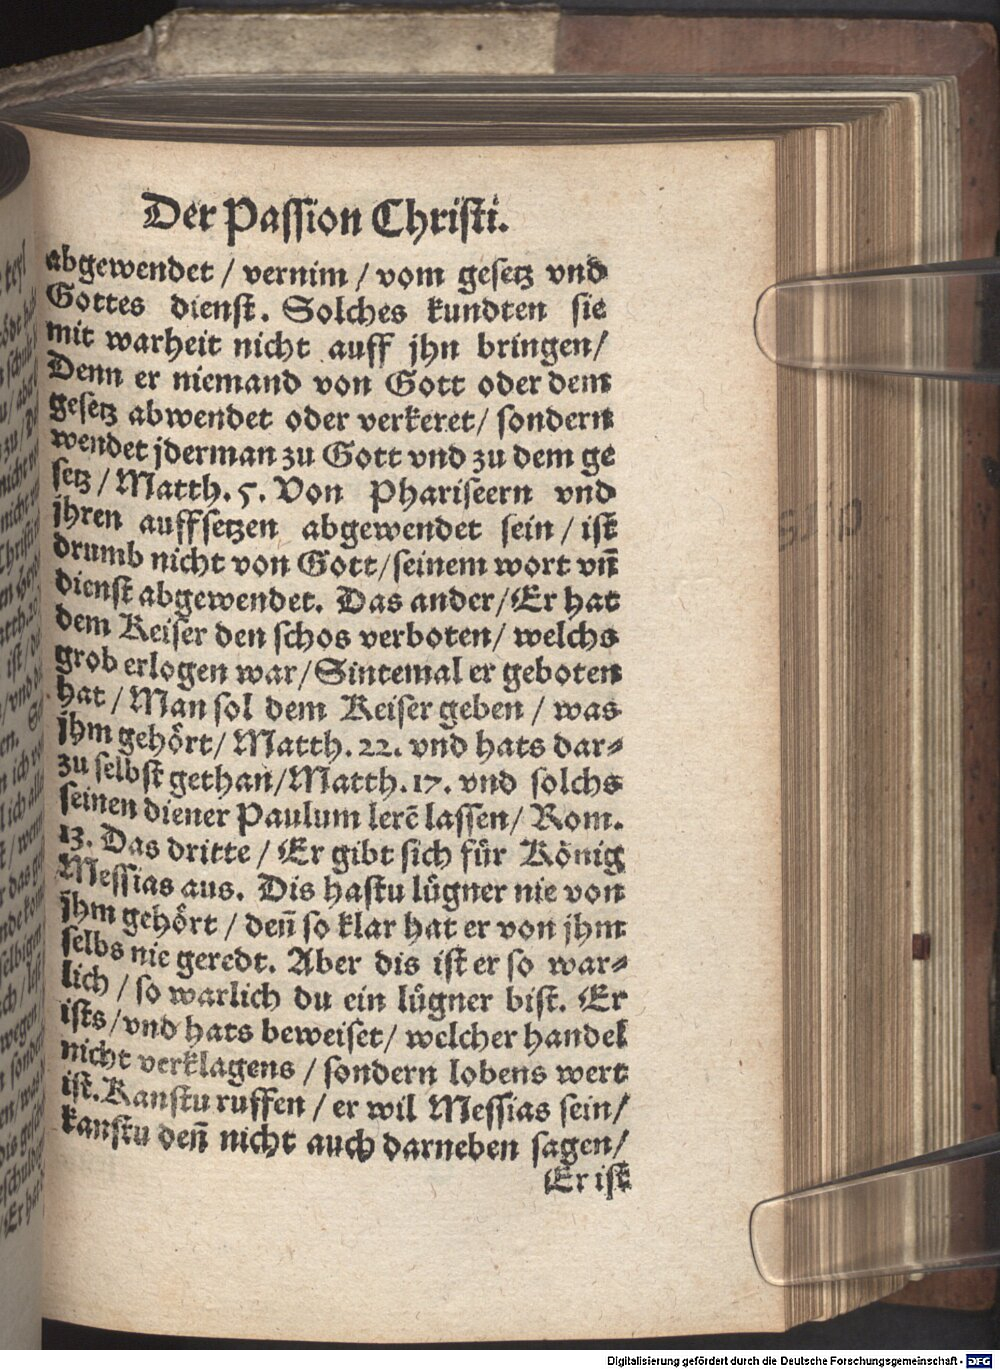 Der Passion Christi.
abgewendet / vernim / vom gesetz vnd
Gottes dienst. Solches kundten sie
mit warheit nicht auff jhn bringen/
Denn er niemand von Gott oder dem
gesetz abwendet oder verkeret/ sondern
wendet jderman zu Gott vnd zu dem ge
setz / Matth. 5. Von Phariseern vnd
jhren auffsetzen abgewendet sein / ist
drumb nicht von Gott/seinem wort vn̄
dienst abgewendet. Das ander/Er hat
dem Keiser den schos verboten/ welchs
grob erlogen war/Sintemal er geboten
hat / Man sol dem Keiser geben / was
jhm gehoͤrt/ Matth. 22. vnd hats dar⸗
zu selbst gethan/Matth. 17. vnd solchs
seinen diener Paulum lerē lassen/ Rom.
13. Das dritte / Er gibt sich fuͤr Koͤnig
Messias aus. Dis hastu luͤgner nie von
jhm gehoͤrt / den̄ so klar hat er von jhm
selbs nie geredt. Aber dis ist er so war⸗
lich / so warlich du ein luͤgner bist. Er
ists /vnd hats beweiset/ welcher handel
nicht verklagens / sondern lobens wert
ist. Kanstu ruffen / er wil Messias sein/
kanstu den̄ nicht auch darneben sagen/
Er ist
Digitalisierung gefördert durch die Deutsche Forschungsgemeinschaft - DFG